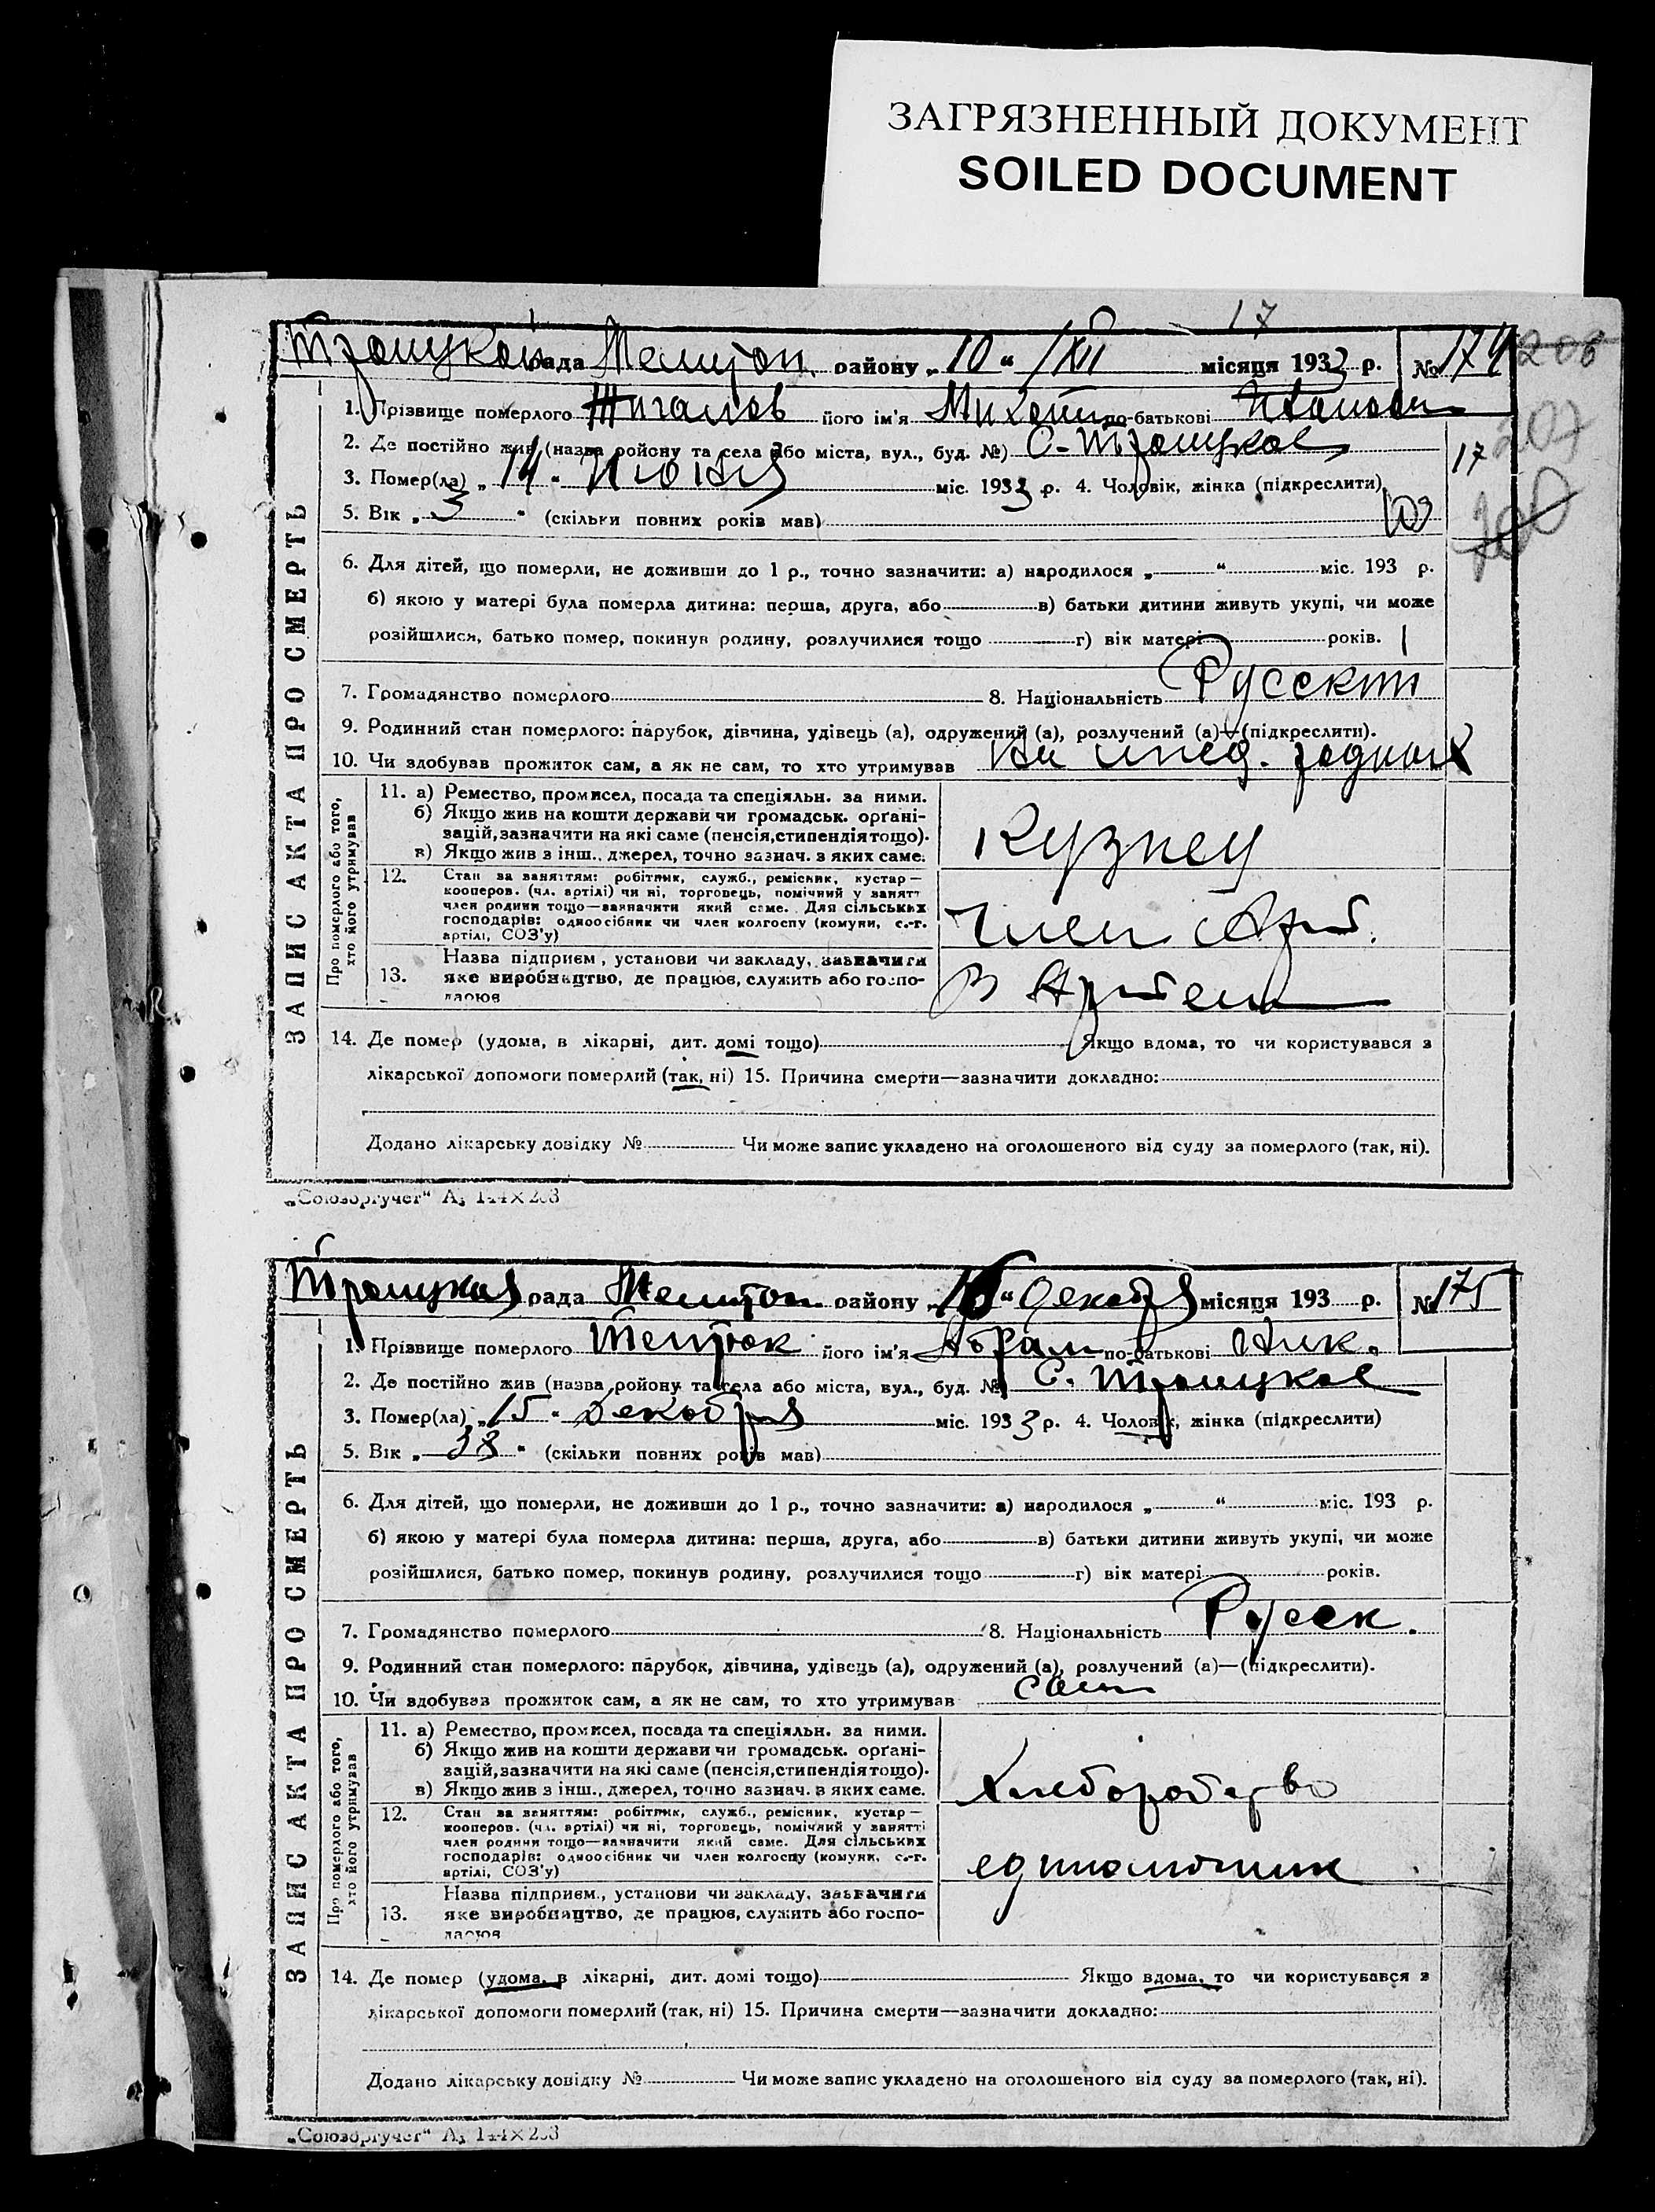 ЗАГРЯЗНЕННЫЙ ДОКУМЕНТ
SOILED DOCUMENT
17
Троицкой рада Мелитоп. району „10“ /XII місяця 1933 р. № 174 208
1. Прізвище померлого Жигалов його ім'я Михаил по-батькові Иванови
207
2. Де постійно жив (назва району та села або міста, вул., буд. №) С-Троицкое
17
3. Помер(ла) „14“ Июня міс. 1933 р. 4. Чоловік, жінка (підкреслити)
5. Вік „3“ (скільки повних років мав)
6. Для дітей, що померли, не доживши до 1 р., точно зазначити: а) народилося „ “ міс. 193 р.
б) якою у матері була померла дитина: перша, друга, або в) батьки дитини живуть укупі, чи може
розійшлися, батько помер, покинув родину, розлучилися тощо г) вік матері років.
7. Громадянство померлого 8. Національність Русский
9. Родинний стан померлого: парубок, дівчина, удівець (а), одружений (а), розлучений (а)—(підкреслити).
10. Чи здобував прожиток сам, а як не сам, то хто утримував На ижд. родных
ЗАПИС АКТА ПРО СМЕРТЬ
Про померлого або того, хто його утримував
11. а) Ремество, промисел, посада та спеціяльн. за ними.
б) Якщо жив на кошти держави чи громадськ. орґані-
зацій, зазначити на які саме (пенсія, стипендія тощо).
в) Якщо жив з інш., джерел, точно зазнач. з яких саме.
Кузнец
12. Стан за заняттям: робітник, служб., ремісник, кустар—
кооперов. (чл. артілі) чи ні, торговець, помічний у занятті
член родини тощо—зазначити який саме. Для сільських
господарів: одноосібник чи член колгоспу (комуни, с.-г.
артілі, СОЗ'у)
Член Арт.
13. Назва підприєм, установи чи закладу, зазначити
яке виробництво, де працює, служить або госпо-
дарює
В Артели
14. Де помер (удома, в лікарні, дит. домі тощо) Якщо вдома, то чи користувався з
лікарської допомоги померлий (так, ні) 15. Причина смерти—зазначити докладно:
Додано лікарську довідку № Чи може запис укладено на оголошеного від суду за померлого (так, ні).
„Союзоргучет“ А₅ 144×203
Троицкая рада Мелитоп району „15“ декабря місяця 193 р. № 175
1. Прізвище померлого Тетюк його ім'я Абрам по-батькові Ник.
2. Де постійно жив (назва району та села або міста, вул., буд. № С. Троицкое
3. Помер(ла) „15“ Декабря міс. 1933 р. 4. Чоловік, жінка (підкреслити)
5. Вік „38“ (скільки повних років мав)
6. Для дітей, що померли, не доживши до 1 р., точно зазначити: а) народилося „ “ міс. 193 р.
б) якою у матері була померла дитина: перша, друга, або в) батьки дитини живуть укупі, чи може
розійшлися, батько помер, покинув родину, розлучилися тощо г) вік матері років.
7. Громадянство померлого 8. Національність Русск.
9. Родинний стан померлого: парубок, дівчина, удівець (а), одружений (а), розлучений (а)—(підкреслити).
10. Чи здобував прожиток сам, а як не сам, то хто утримував сам
ЗАПИС АКТА ПРО СМЕРТЬ
Про померлого або того, хто його утримував
11. а) Ремество, промисел, посада та спеціяльн. за ними.
б) Якщо жив на кошти держави чи громадськ. орґані-
зацій, зазначити на які саме (пенсія, стипендія тощо).
в) Якщо жив з інш., джерел, точно зазнач. з яких саме.
Хлеборобство
12. Стан за заняттям: робітник, служб., ремісник, кустар—
кооперов. (чл. артілі) чи ні, торговець, помічний у занятті
член родини тощо—зазначити який саме. Для сільських
господарів: одноосібник чи член колгоспу (комуни, с.-г.
артілі, СОЗ'у)
единоличник
13. Назва підприєм., установи чи закладу, зазначити
яке виробництво, де працює, служить або госпо-
дарює
14. Де помер (удома, в лікарні, дит. домі тощо) Якщо вдома, то чи користувався з
лікарської допомоги померлий (так, ні) 15. Причина смерти—зазначити докладно:
Додано лікарську довідку № Чи може запис укладено на оголошеного від суду за померлого (так, ні).
„Союзоргучет“ А₅ 144×203